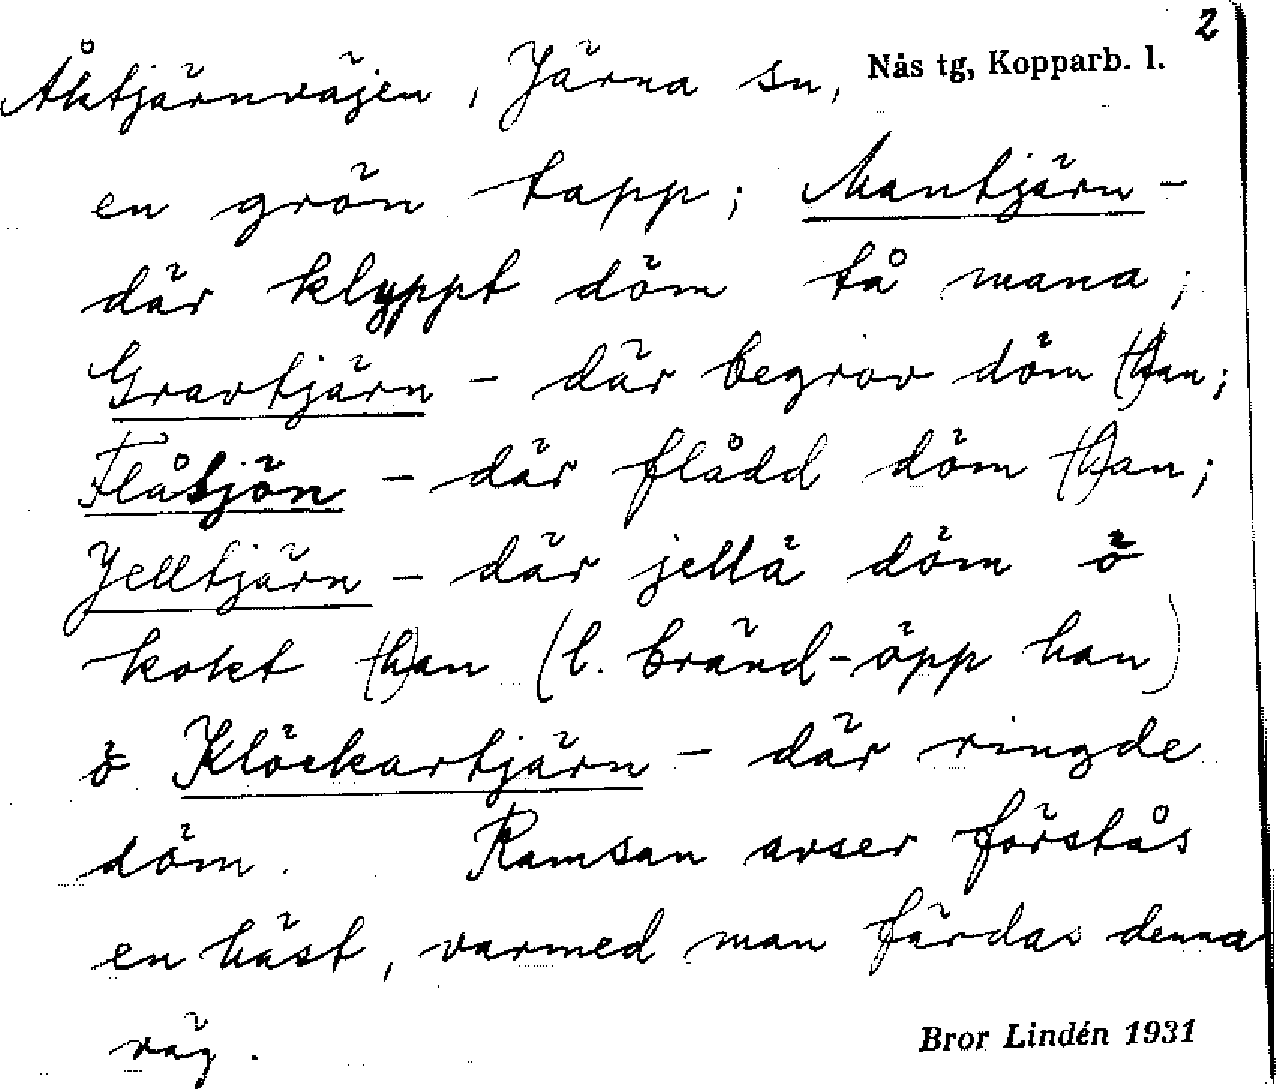 2
Åktjärnväjen, Järna sn, Nås tg, Kopparb. l.
en grön tapp; Mantjärn -
där klyppt döm tå mana;
Gravtjärn - där begrov döm (h)an;
Flåsjön - där flådd döm (h)an;
Jelltjärn - där jellä döm ö
kokt (h)an (l. bränd-öpp han)
ö Klöckartjärn - där ringde
döm. Ramsan avser förstås
en häst, varmed man färdas denna
väg.
Bror Lindén 1931